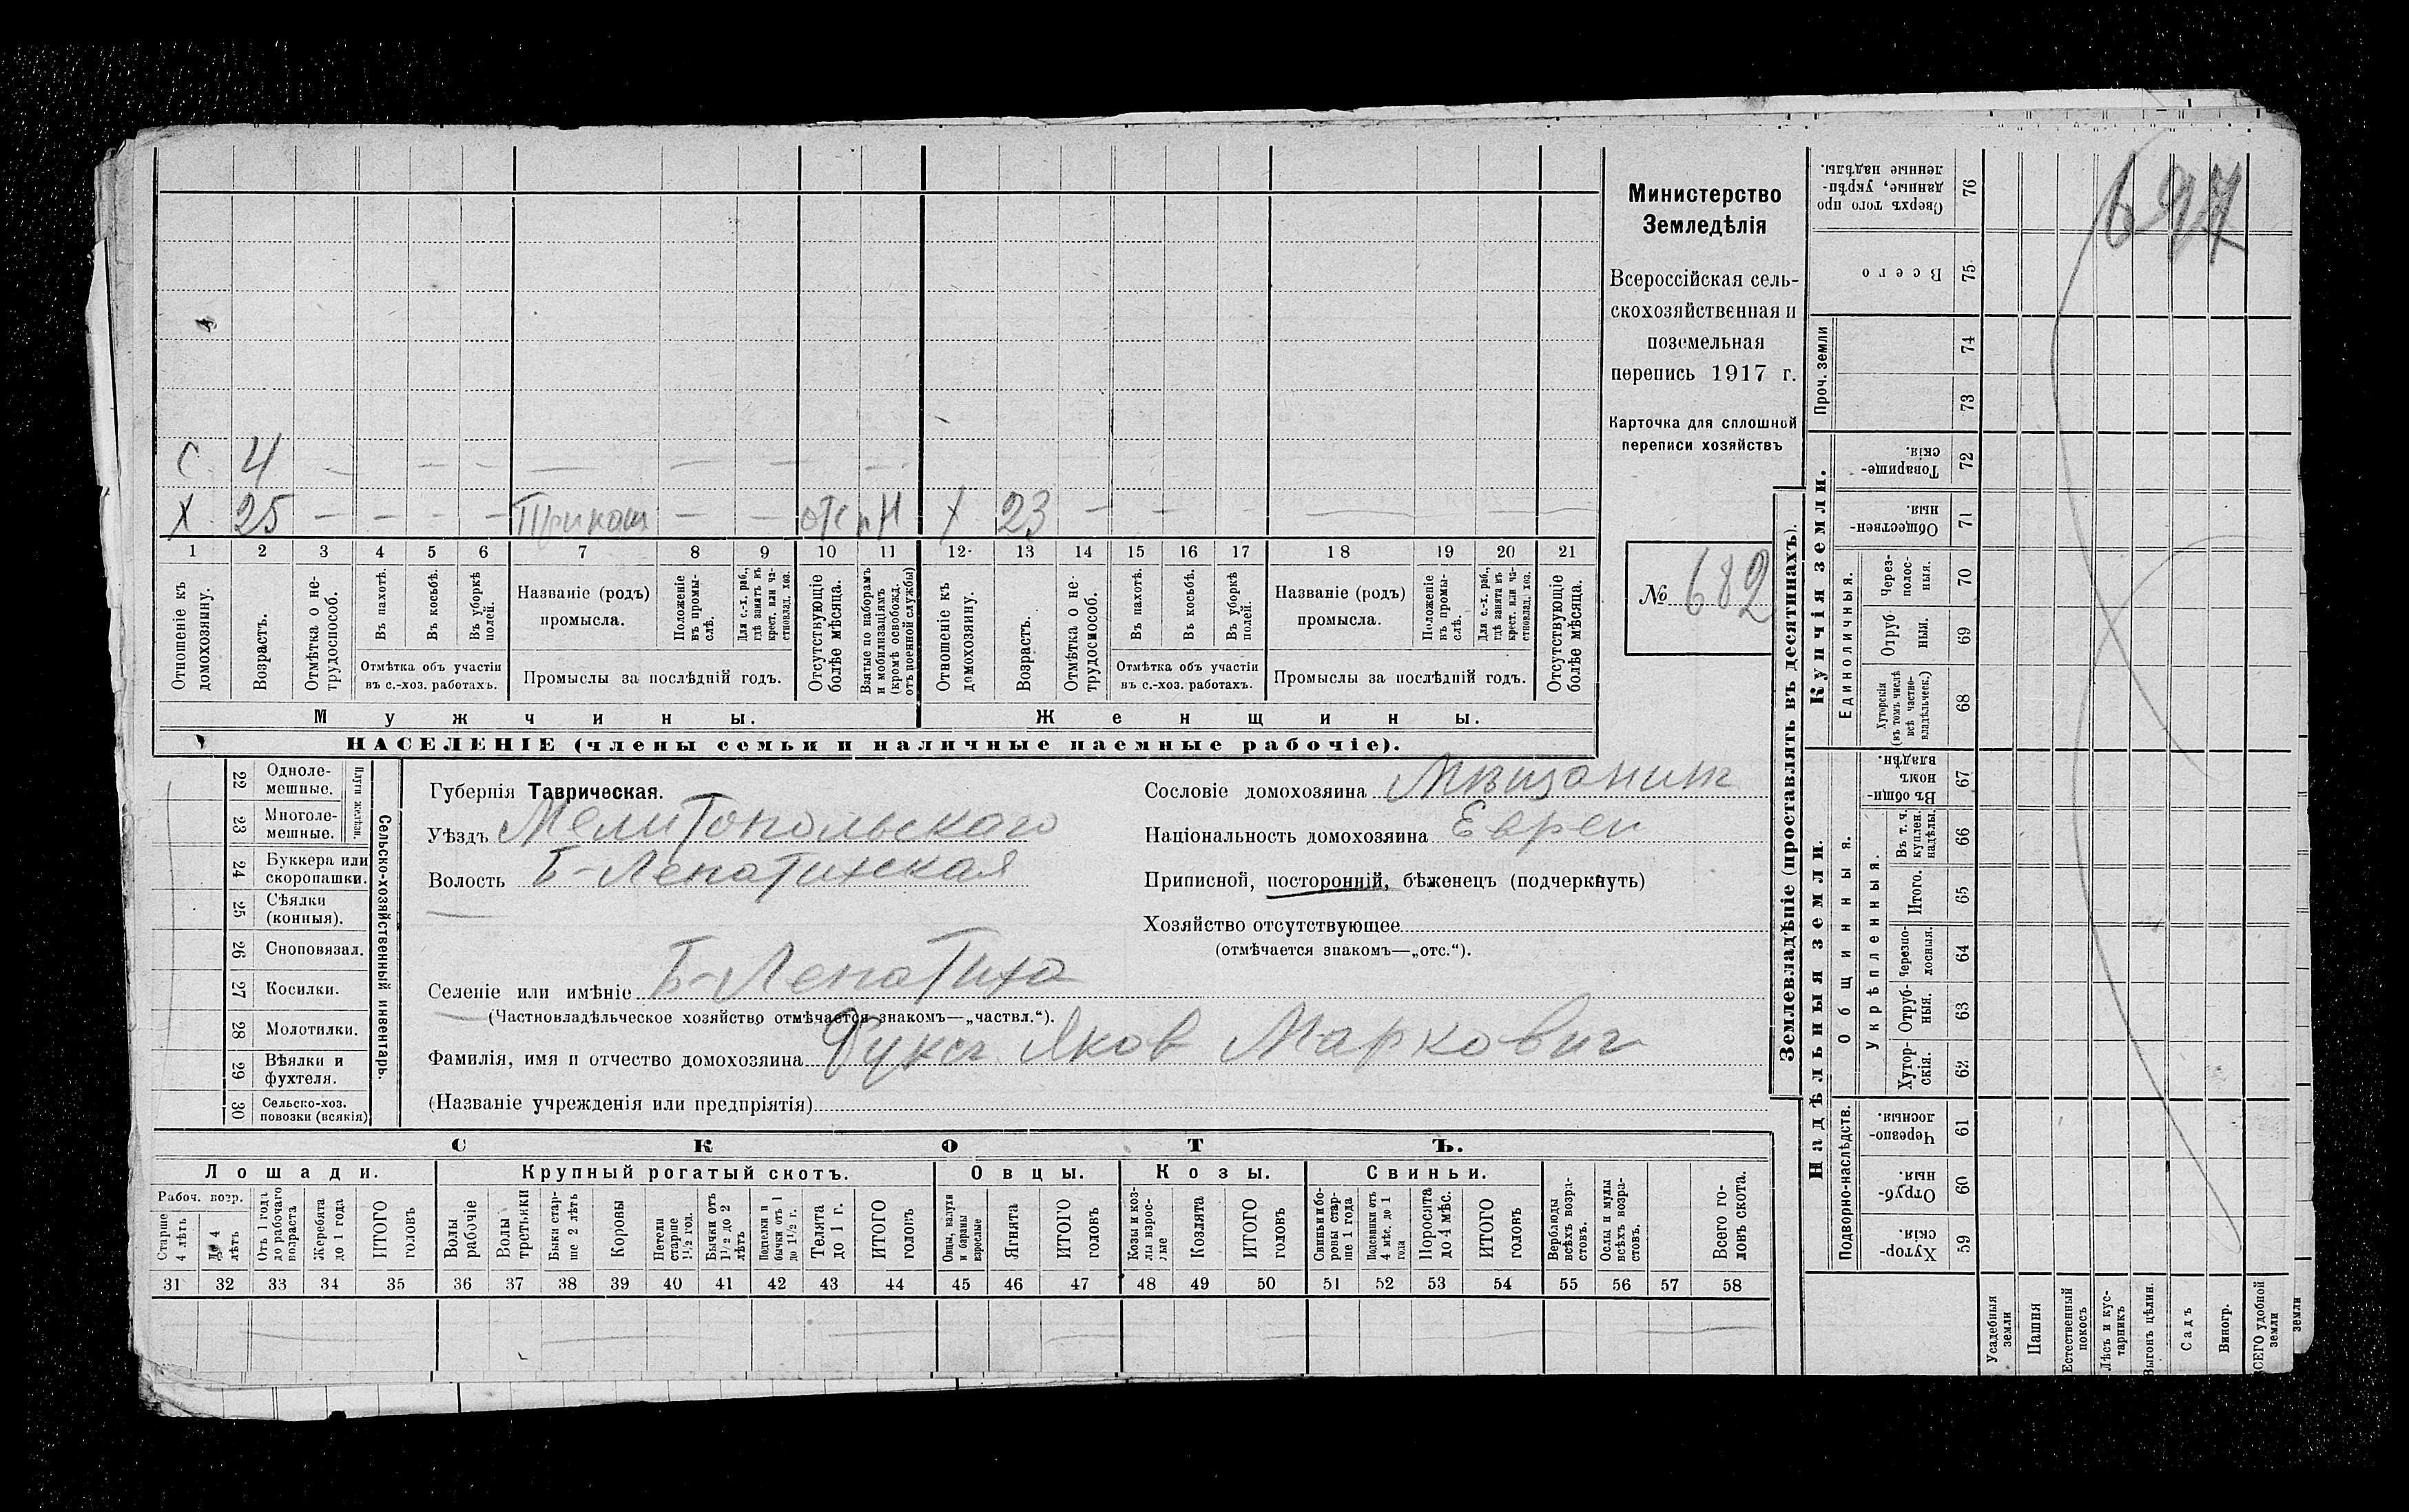 С 4 — — — — — — — —
Х 25 — — — — Приказ — — отс Х 23 — — — — — — —
1 2 3 4 5 6 7 8 9 10 11 12 13 14 15 16 17 18 19 20 21
Отношеніе къ домохозяину.
Возрастъ.
Отмѣтка о не-трудоспособ.
Въ пахотѣ.
Въ косьбѣ.
Въ уборкѣ полей.
Отмѣтка объ участіи
въ с.-хоз. работахъ.
Названіе (родъ)
промысла.
Положеніе въ промы-слѣ.
Для с.-х. раб., гдѣ занятъ въ крест. или ча-стновлад. хоз.
Промыслы за послѣдній годъ.
Отсутствующіе болѣе мѣсяца.
Взятые по наборамъ и мобилизаціямъ (кромѣ освобожд. отъ военной службы)
Отношеніе къ домохозяину.
Возрастъ.
Отмѣтка о не-трудоспособ.
Въ пахотѣ.
Въ косьбѣ.
Въ уборкѣ полей.
Отмѣтка объ участіи
въ с.-хоз. работахъ.
Названіе (родъ)
промысла.
Положеніе въ промы-слѣ.
Для с.-х. раб., гдѣ занята въ крест. или ча-стновлад. хоз.
Промыслы за послѣдній годъ.
Отсутствующіе болѣе мѣсяца.
Мужчины.
Женщины.
НАСЕЛЕНІЕ (члены семьи и наличные наемные рабочіе).
Министерство
Земледѣлія
Всероссійская сель-
скохозяйственная и
поземельная
перепись 1917 г.
Карточка для сплошной
переписи хозяйствъ
№ 682
Сельско-хозяйственный инвентарь.
Плуги желѣзн.
22 Одноле-мешные.
23 Многоле-мешные.
24 Буккера или скоропашки.
25 Сѣялки (конныя).
26 Сноповязал.
27 Косилки.
28 Молотилки.
29 Вѣялки и фухтеля.
30 Сельско-хоз. повозки (всякія)
Губернія Таврическая.
Уѣздъ Мелитопольскаго
Волость Б-Лепатихская
Селеніе или имѣніе Б-Лепатиха
(Частновладѣльческое хозяйство отмѣчается знакомъ—„частвл.“).
Фамилія, имя и отчество домохозяина Фукс Яков Маркович
(Названіе учрежденія или предпріятія)
Сословіе домохозяина Мѣщанин
Національность домохозяина Еврей
Приписной, посторонній, бѣженецъ (подчеркнуть)
Хозяйство отсутствующее
(отмѣчается знакомъ—„отс.“).
СКОТЪ.
Лошади.
Рабоч. возр.
Старше 4 лѣтъ
До 4 лѣтъ
Отъ 1 года до рабочаго возраста
Жеребята до 1 года
ИТОГО головъ
Крупный рогатый скотъ.
Волы рабочіе
Волы третьяки
Быки стар-ше 2 лѣтъ
Коровы
Нетели старше 1½ год.
Бычки отъ 1½ до 2 лѣтъ
Подтелки и бычки отъ 1 до 1½ г.
Телята до 1 г.
ИТОГО головъ
Овцы.
Овцы, валухи и бараны взрослые
Ягнята
ИТОГО головъ
Козы.
Козы и коз-лы взрос-лые
Козлята
ИТОГО головъ
Свиньи.
Свиньи и бо-ровы стар-ше 1 года
Подсвинки отъ 4 мѣс. до 1 года
Поросята до 4 мѣс.
ИТОГО головъ
Верблюды всѣхъ возра-стовъ.
Ослы и мулы всѣхъ возра-стовъ.
Всего го-ловъ скота.
31 32 33 34 35 36 37 38 39 40 41 42 43 44 45 46 47 48 49 50 51 52 53 54 55 56 57 58
Землевладѣніе (проставлять въ десятинахъ).
Надѣльныя земли.
Купчія земли.
Проч. земли
Подворно-наслѣдств.
Общинныя.
Укрѣпленныя.
Единоличныя.
Сверхъ того про-данные, укрѣп-ленные надѣлы. 76
Всего 75
74
73
Товарище-скія. 72
Обществен-ныя. 71
Через-полос-ныя. 70
Отруб-ныя. 69
Хуторскія (въ томъ числѣ всѣ частно-владѣльческ.) 68
Въ общи-номъ владѣн. 67
Въ т. ч. куплен. надѣлы. 66
Итого. 65
Черезпо-лосныя. 64
Отруб-ныя. 63
Хутор-скія. 62
Черезпо-лосныя. 61
Отруб-ныя. 60
Хутор-скія. 59
Усадебныя земли
Пашня
Естественный покосъ
Лѣсъ и кус-тарникъ
Выгонъ цѣлин.
Садъ
Виногр.
ВСЕГО удобной земли
земли
697